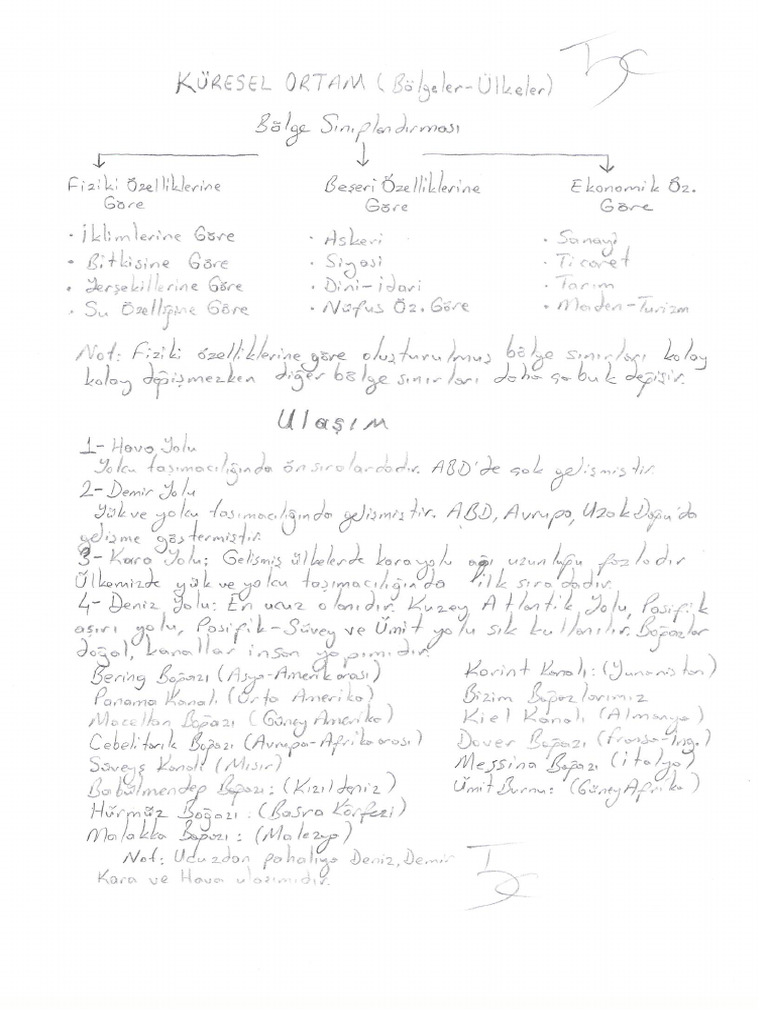 KÜRESEL ORTAM (Bölgeler-Ülkeler)
Bölge Sınıflandırması
Fiziki Özelliklerine Göre
Beşeri Özelliklerine Göre
Ekonomik Öz. Göre
• İklimlerine Göre
• Bitkisine Göre
• Yerşekillerine Göre
• Su Özelliğine Göre
• Askeri
• Siyasi
• Dini-İdari
• Nüfus Öz. Göre
• Sanayi
• Ticaret
• Tarım
• Maden-Turizm
Not: Fiziki özelliklerine göre oluşturulmuş bölge sınırları kolay
kolay değişmezken diğer bölge sınırları daha çabuk değişir.
Ulaşım
1- Hava Yolu
Yolcu taşımacılığında ön sıralardadır. ABD'de çok gelişmiştir.
2- Demir Yolu
Yük ve yolcu taşımacılığında gelişmiştir. ABD, Avrupa, Uzak Doğu'da
gelişme göstermiştir.
3- Kara Yolu: Gelişmiş ülkelerde karayolu ağı uzunluğu fazladır
Ülkemizde yük ve yolcu taşımacılığında ilk sıradadır.
4- Deniz Yolu: En ucuz olanıdır. Kuzey Atlantik Yolu, Pasifik
aşırı yolu, Pasifik-Süvey ve Ümit yolu sık kullanılır. Boğazlar
doğal, kanallar insan yapımıdır.
Bering Boğazı (Asya-Amerika arası)
Panama Kanalı (Orta Amerika)
Macellan Boğazı (Güney Amerika)
Cebelitarık Boğazı (Avrupa-Afrika arası)
Süveyş Kanalı (Mısır)
Babülmendep Boğazı: (Kızıldeniz)
Hürmüz Boğazı: (Basra Körfezi)
Malakka Boğazı: (Malezya)
Korint Kanalı: (Yunanistan)
Bizim Boğazlarımız
Kiel Kanalı (Almanya)
Dover Boğazı (Fransa-İng.)
Messina Boğazı (İtalya)
Ümit Burnu: (Güney Afrika)
Not: Ucuzdan pahalıya Deniz, Demir
Kara ve Hava ulaşımıdır.